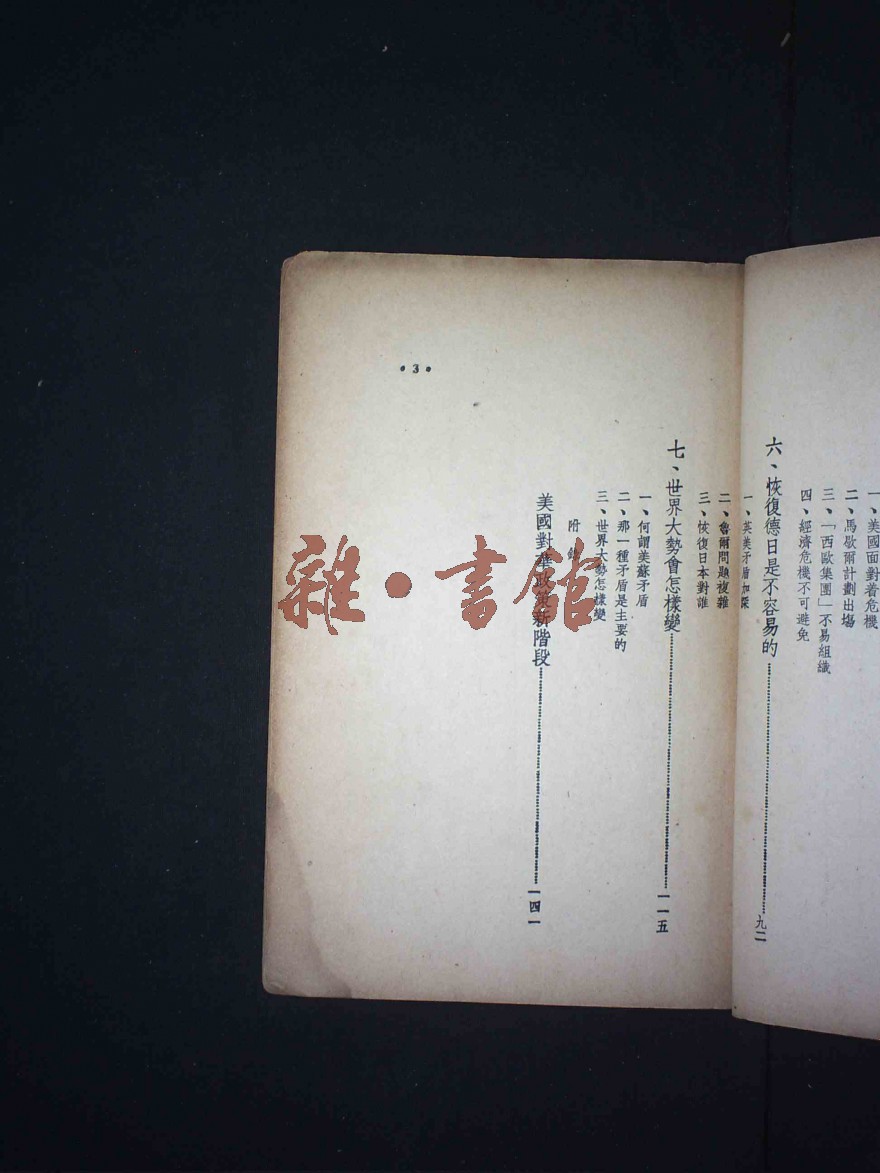 一、美國面對着危機
二、馬歇爾計劃出場
三、「西歐集團」不易組織
四、經濟危機不可避免
六、恢復德日是不容易的……九二
一、英美矛盾加深
二、魯爾問題複雜
三、恢復日本對誰
七、世界大勢會怎樣變……一一五
一、何謂美蘇矛盾
二、那一種矛盾是主要的
三、世界大勢怎樣變
附錄
美國對華政策新階段……一四一
•3•
雜·書館